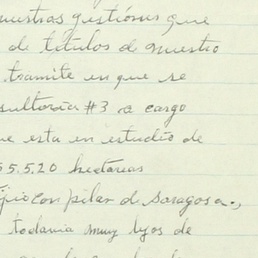 nuestras gestiones que
de titulos d nuestro
tramite en que se
sultoria #3 a cargo
ue esta en estudio de
55.520 hectareas
con pilar d saragosa.,
todavia muy lejos de